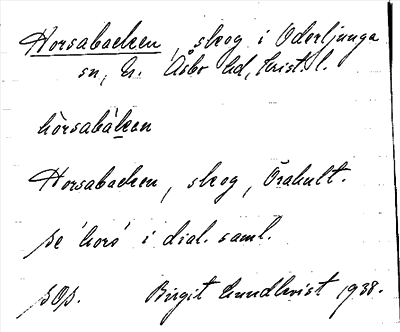 Horsabacken, skog i Oderljunga
sn, N. Åsbo hd, Krist. l.
hòrsabàken
Horsabacken, skog, Örahult.
se 'hors' i dial. saml.
Birgit Lundkvist 1938.